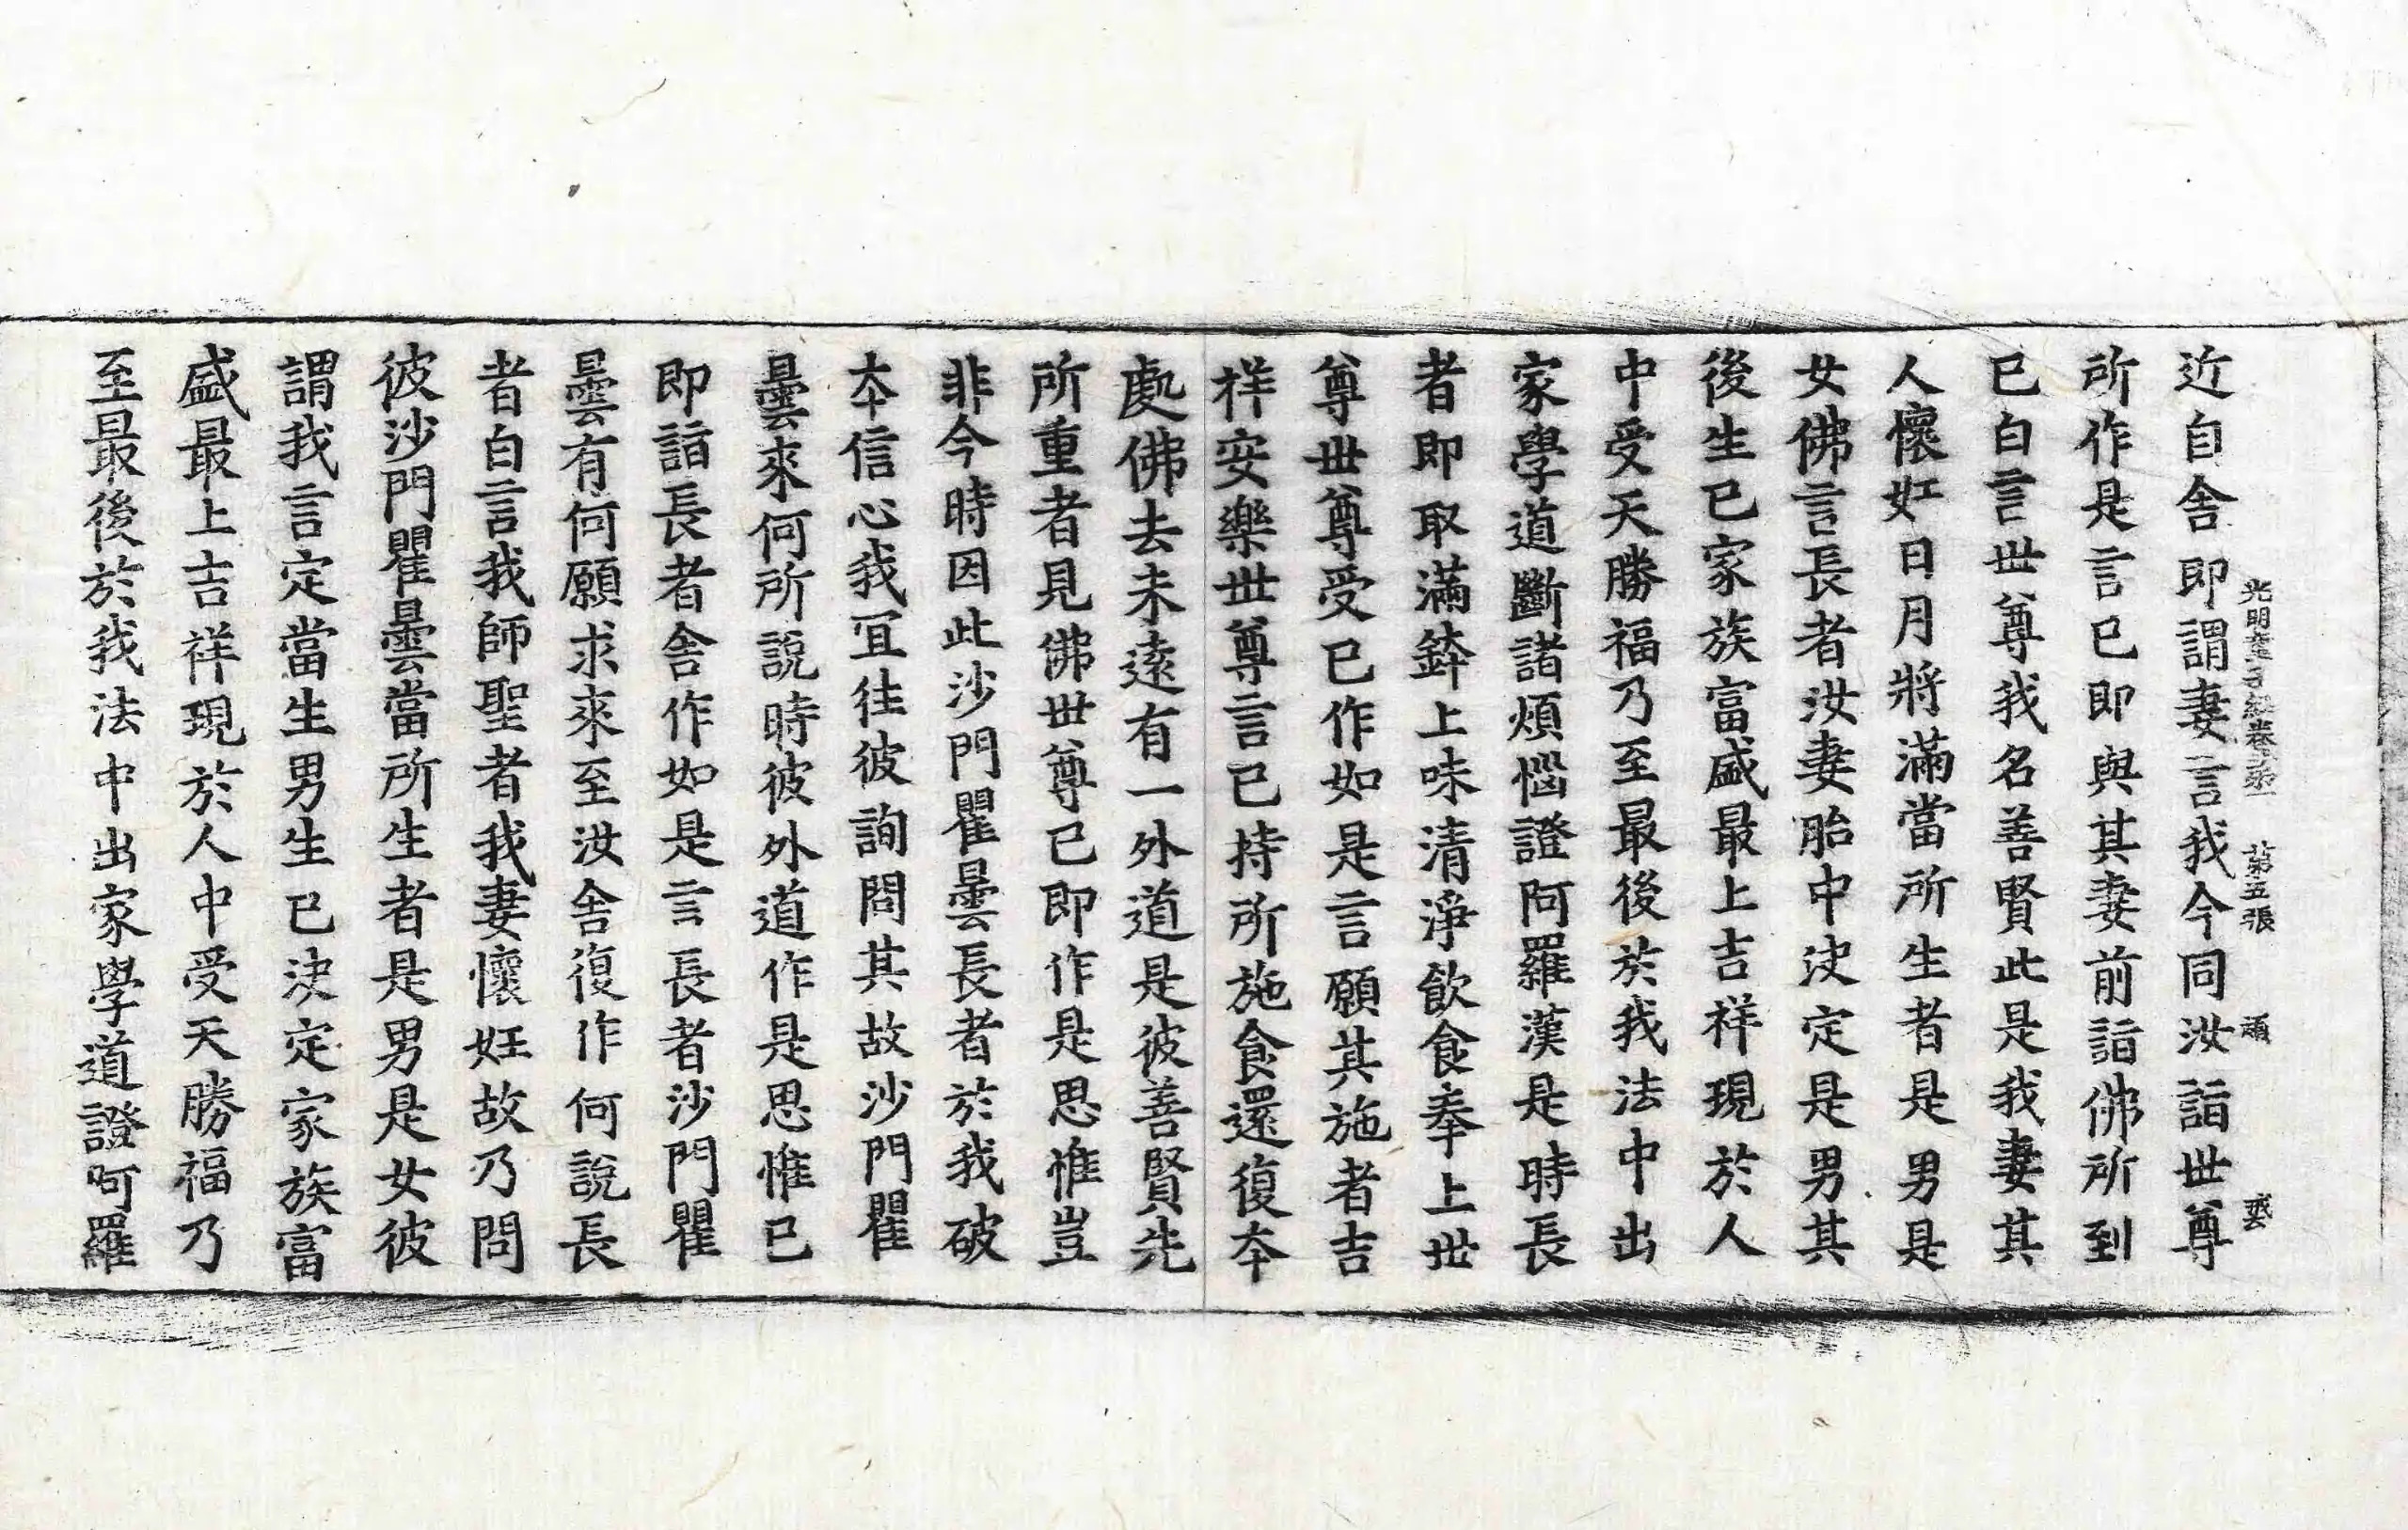 近自舎即謂妻言我今同汝詣世尊
光明童子經卷第一 第五張
所作是言已即與其妻前詣佛所到
已白言世尊我名善賢此是我妻其
人懷妊日月將滿當所生者是男是
女佛言長者汝妻胎中決定是男其
後生已家族富盛最上吉祥現於人
中受天勝福乃至最後於我法中出
家學道斷諸煩惱證阿羅漢是時長
者即取滿鉢上味清淨飲食奉上世
尊世尊受已作如是言願其施者吉
祥安樂世尊言已持所施食還復本
處佛去未遠有一外道是彼善賢先
所重者見佛世尊已即作是思惟豈
非今時因此沙門瞿曇長者於我破
本信心我宜往彼詢問其故沙門瞿
曇來何所說時彼外道作是思惟已
即詣長者舍作如是言長者沙門瞿
曇有何願求來至汝舍復作何說長
者白言我師聖者我妻懷妊故乃問
彼沙門瞿曇當所生者是男是女彼
謂我言定當生男生已決定家族富
盛最上吉祥現於人中受天勝福乃
至最後於我法中出家學道證阿羅